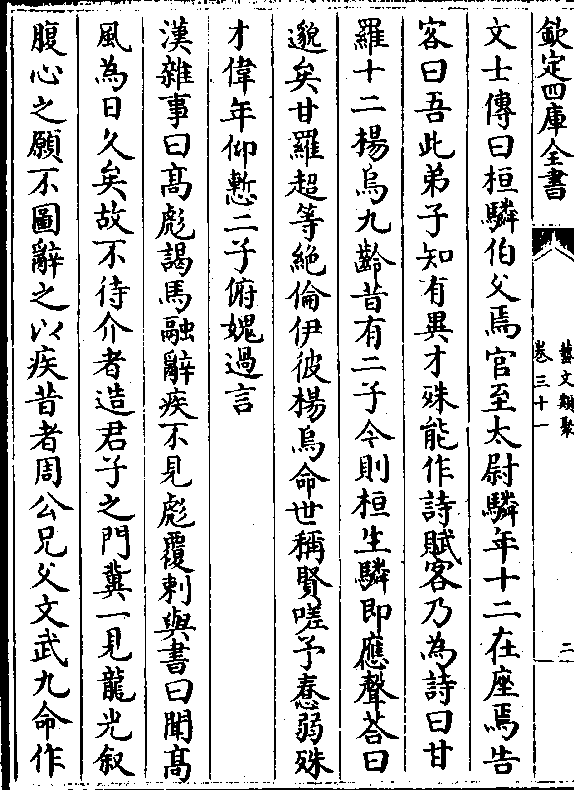 欽定四庫全書
藝文類聚
卷三十一
二
文士傳曰桓驎伯父焉官至太尉驎年十二在座焉告
客曰吾此弟子知有異才殊能作詩賦客乃為詩曰甘
羅十二楊烏九齡昔有二子今則桓生驎即應聲荅曰
邈矣甘羅超等絕倫伊彼楊烏命世稱賢嗟予惷弱殊
才偉年仰慙二子俯媿過言
漢雜事曰髙彪謁馬融辭疾不見彪覆刺與書曰聞髙
風為日久矣故不待介者造君子之門冀一見龍光叙
腹心之願不圖辭之以疾昔者周公兄父文武九命作